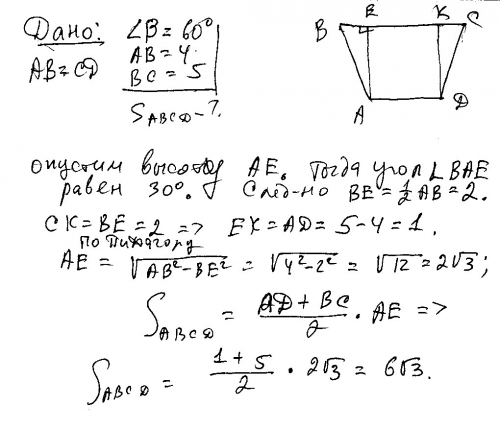 Дано: ∠B = 60°
AB = 4
AB = CD
BC = 5
S_ABCD - ?
B E K C
A D
опустим высоту AE. Тогда угол ∠BAE
равен 30°. След-но BE = ½ AB = 2.
CK = BE = 2 => EK = AD = 5 - 4 = 1.
по Пифагору
AE = √(AB² - BE²) = √(4² - 2²) = √12 = 2√3;
S_ABCD = (AD + BC)/2 · AE =>
S_ABCD = (1 + 5)/2 · 2√3 = 6√3.